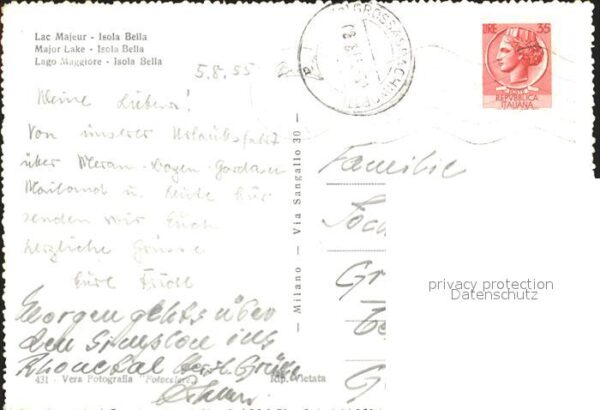 Lac Majeur - Isola Bella
Major Lake - Isola Bella
Lago Maggiore - Isola Bella
5.8.55
Meine Lieben!
Von unserer Urlaubsfahrt
über Meran - Bozen - Gardasee
Mailand u. heute hier
senden wir Euch
herzliche Grüsse
Eure
Morgen gehts über
den Simplon ins
Rhonetal herzl. Grüße
431 - Vera Fotografia "Fotocelere"
Rip. Vietata
— Milano — Via Sangallo 30 —
LIRE 35
POSTE
REPVBBLICA
ITALIANA
Familie
privacy protection
Datenschutz